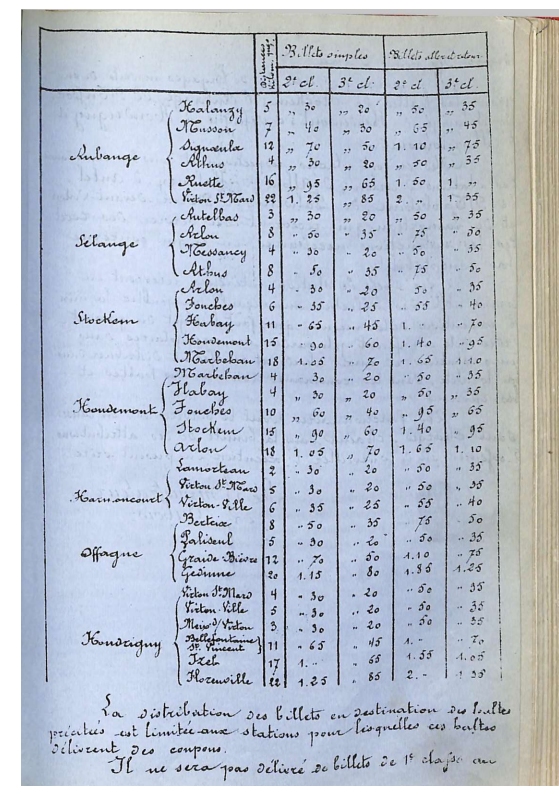 Distances kilom. Billets simples Billets aller et retour
2e cl. 3e cl. 2e cl. 3e cl.
Aubange
Halanzy 5 " 30 " 20 " 50 " 35
Musson 7 " 40 " 30 " 65 " 45
Signeulx 12 " 70 " 50 1.10 " 75
Athus 4 " 30 " 20 " 50 " 35
Ruette 16 " 95 " 65 1.50 1. "
Virton St Mard 22 1.25 " 85 2. " 1 35
Sélange
Autelbas 3 " 30 " 20 " 50 " 35
Arlon 8 " 50 " 35 " 75 " 50
Messancy 4 " 30 " 20 " 50 " 35
Athus 8 " 50 " 35 " 75 " 50
Stockem
Arlon 4 " 30 " 20 " 50 " 35
Fouches 6 " 35 " 25 " 55 " 40
Habay 11 " 65 " 45 1. " " 70
Houdemont 15 " 90 " 60 1.40 " 95
Marbehan 18 1.05 " 70 1.65 1.10
Houdemont
Marbehan 4 " 30 " 20 " 50 " 35
Habay 4 " 30 " 20 " 50 " 35
Fouches 10 " 60 " 40 " 95 " 65
Stockem 15 " 90 " 60 1.40 " 95
Arlon 18 1.05 " 70 1.65 1.10
Harnoncourt
Lamorteau 2 " 30 " 20 " 50 " 35
Virton St Mard 5 " 30 " 20 " 50 " 35
Virton-Ville 6 " 35 " 25 " 55 " 40
Offagne
Bertrix 8 " 50 " 35 " 75 " 50
Paliseul 5 " 30 " 20 " 50 " 35
Graide-Bièvre 12 " 70 " 50 1.10 " 75
Gedinne 20 1.15 " 80 1.85 1.25
Houdrigny
Virton St Mard 4 " 30 " 20 " 50 " 35
Virton-Ville 5 " 30 " 20 " 50 " 35
Meix d/ Virton 3 " 30 " 20 " 50 " 35
Bellefontaine St Vincent 11 " 65 " 45 1. " " 70
Izel 17 1. " " 65 1.55 1.05
Florenville 22 1.25 " 85 2. " 1 35
La distribution des billets en destination des haltes
précitées est limitée aux stations pour lesquelles ces haltes
délivrent des coupons.
Il ne sera pas délivré de billets de 1e classe au